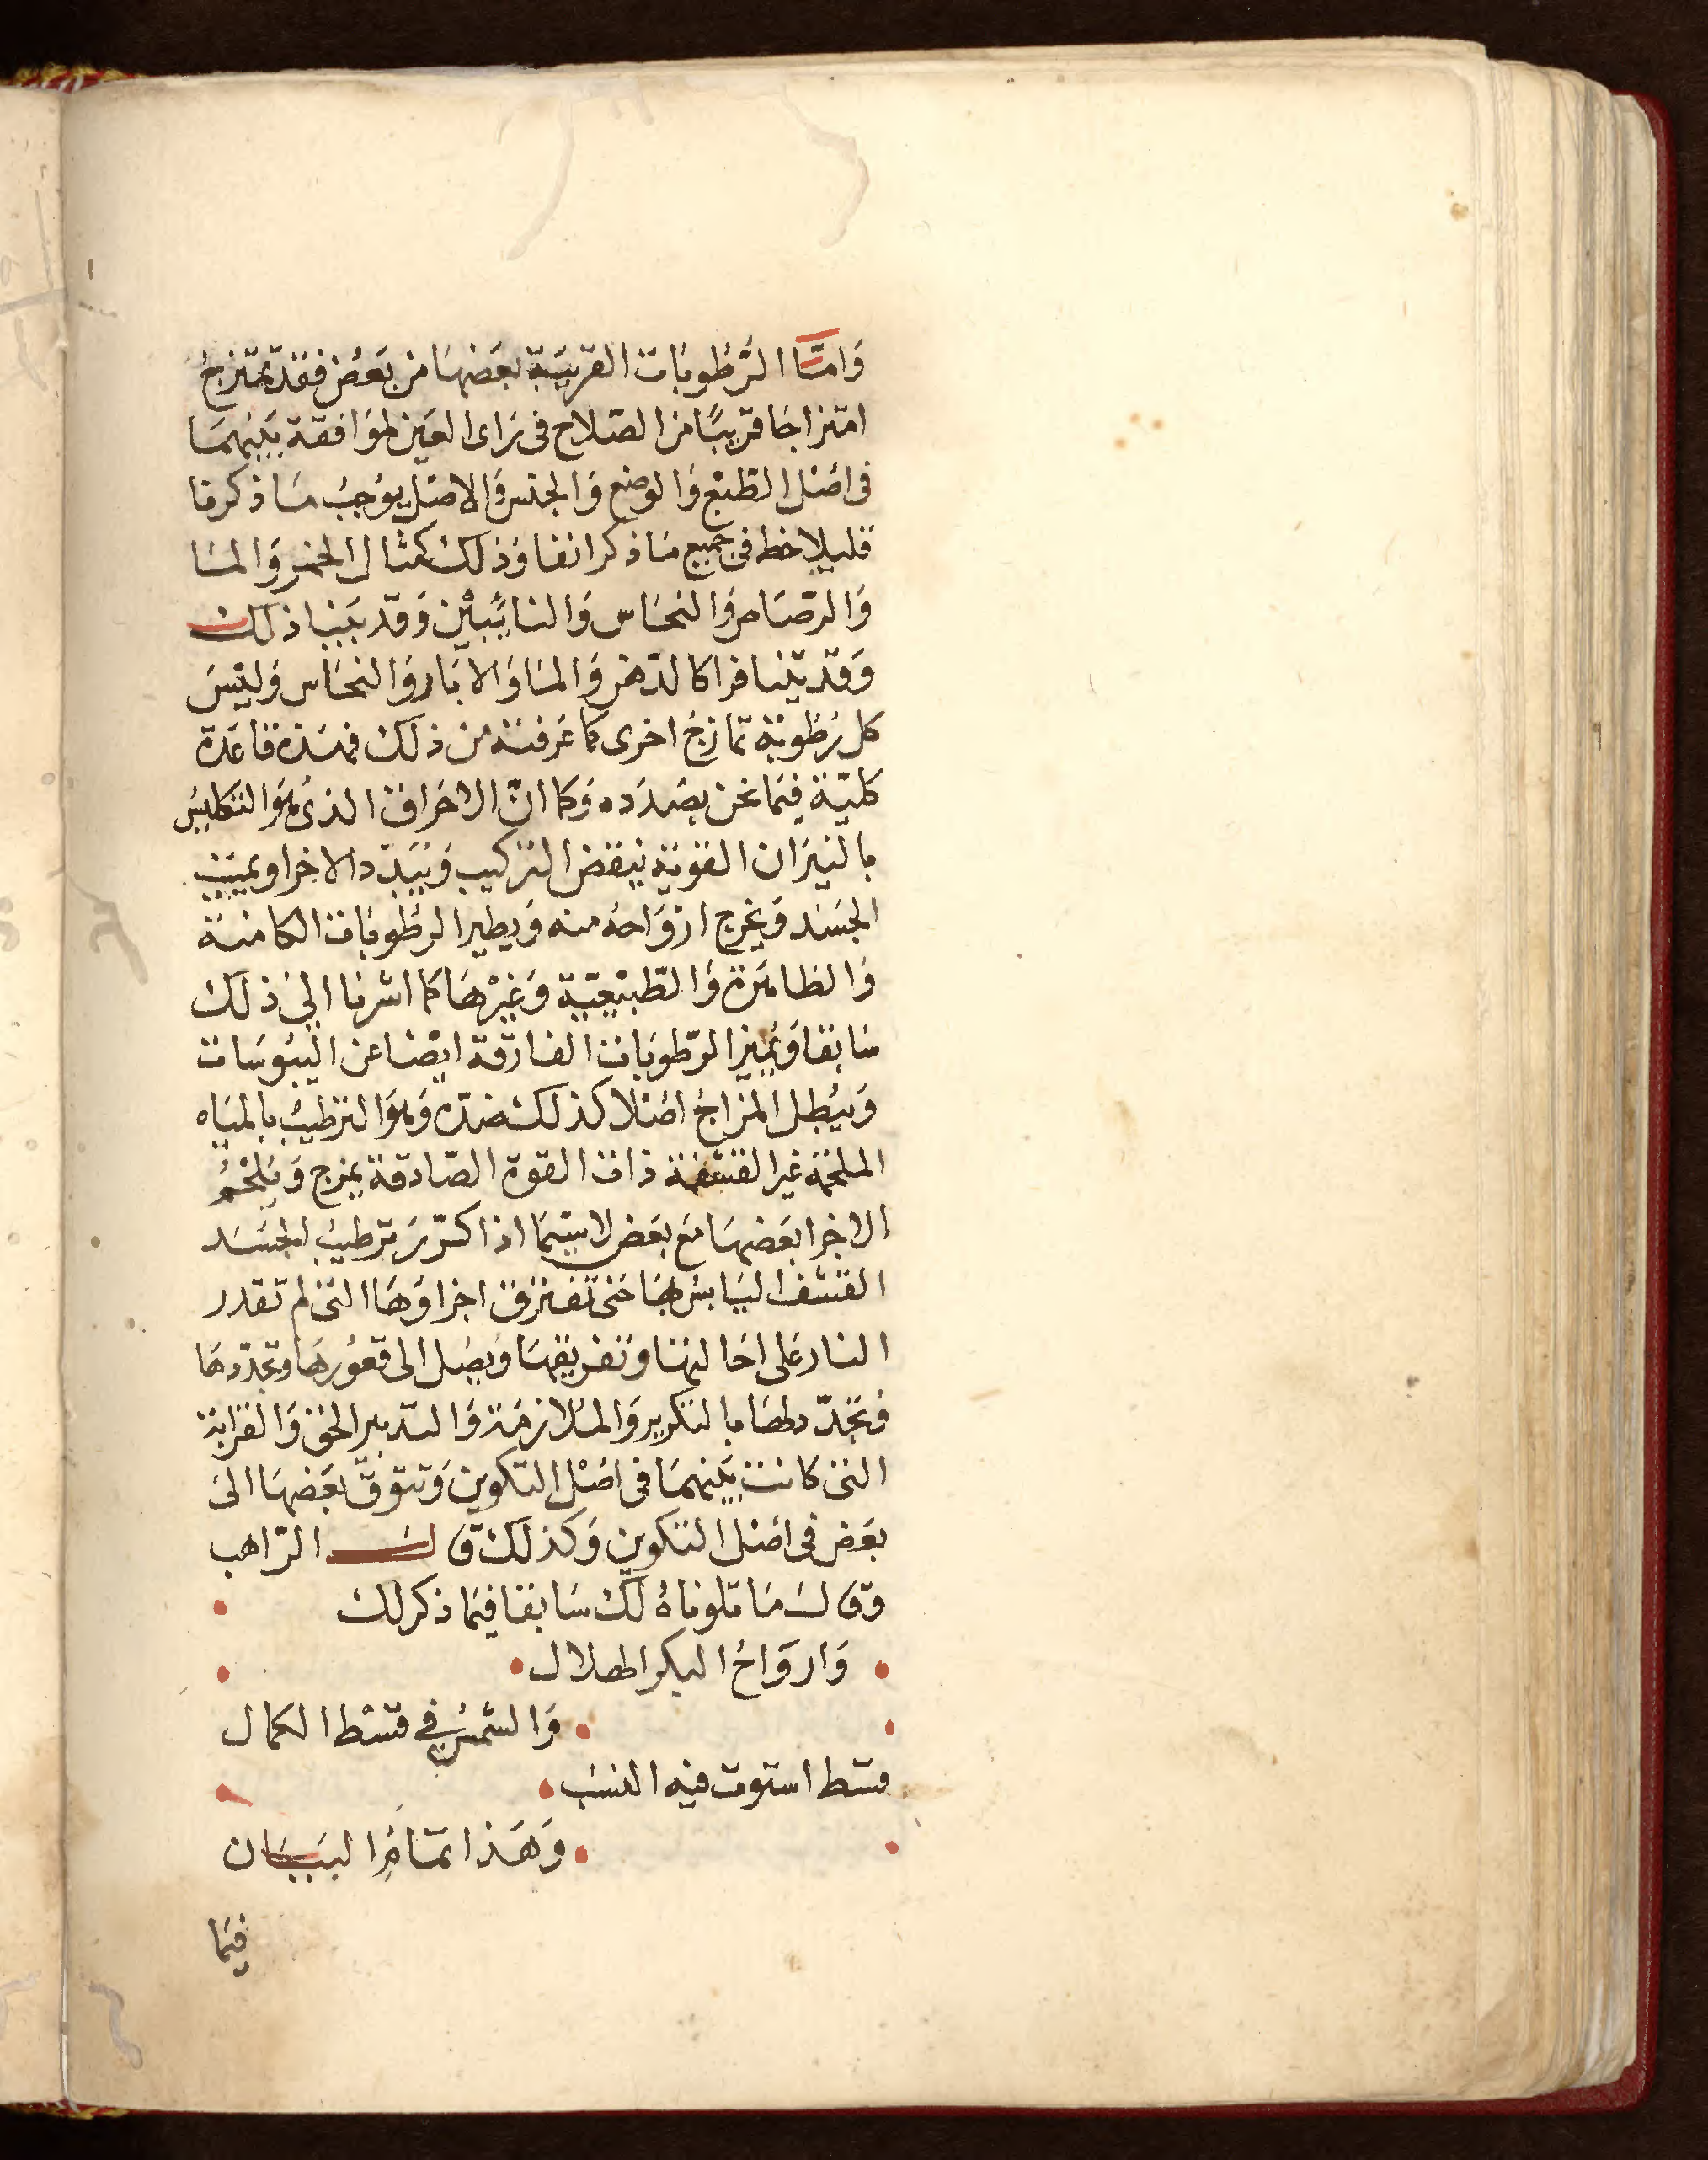 وَامّا الرُّطُوبَات القريبَة بعَضهَا من بَعَض فقد تمتزجُ
امتزاجَا قريبًا من الصّلاح فى رَاى العَين لموَافقة بَينهمَا
فى اصْل الطّبْع وَالوضع وَالجنس وَالاصْل يوُجبُ مَا ذكرنا
فليلاحظ فى جميع مَا ذكر انفا وَذلك كمثال الخمر وَالمَا
وَالرّصَاص وَالنحَاس وَالنايَبيْن وَقد بَينا ذلك
وَقد يتنافرا كالدّهن وَالمَا وَالابَار وَالنحَاس وَليْسَ
كل رُطُوبَة تمازجُ اخرى كما عَرفته من ذلك فهَذه قاعَدة
كليّة فيمَا نحن بصَدَده وَكما انّ الاحَراق الذىُ هوَ التكليسُ
بالنيرَان القوية ينقض التركيب وَيُبَدّد الاجزا ويميت
الجسَد وَيخرج ارْوَاحهُ منه وَيطير الرُطُوبَات الكامنة
وَالظاهَرة وَالطّبيْعيّة وَغيْرهَا كما اشرنا الىَ ذلك
سَابقا وَيُميز الرّطوبَات الفارقة ايْضا عن اليبُوسَات
وَيبُطل المزَاجُ اصْلا كذلك ضدّه وَهوَ الترطيبُ بالميَاه
الملحمة غير القشفة ذات القوة الصّادقة يمزج وَيُلحْمُ
الاجزا بعَضهَا مَع بعَض لا سيّمَا اذا كرّرَ ترطيبُ الجسَد
القشف اليَابسُ بهَا حَتى تفترق اجزاوَهَا التى لم تقدر
النار عَلى احَالتهَا وتفريقهَا وَيصَل الى قعوُرهَا وتجدّدهَا
فتجَدّد لهَا بالتكرير وَالملازمَة وَالتدبير الحَق وَالقرَابَة
التى كانت بَينهمَا فى اصْل التكوين وَتتوقّ بعَضهَا الىَ
بعَض فى اصَل التكوين وَكذلك قَالَ الرّاهب
وقَالَ مَا تلوناهُ لك سَابقا فيمَا ذكر لك
وَاروَاحُ البكر الهلال
وَالشّمسُ فى قسْط الكمال
قسَط استوت فيه النسَب
وَهَذا تمَامُ البيَان
فيمَا